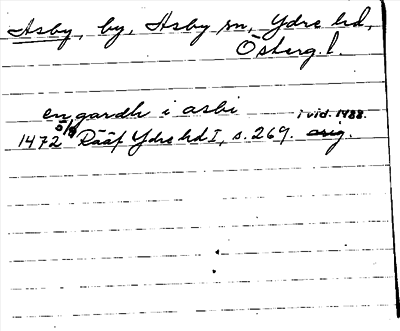 Asby, by, Asby sn, Ydre hd,
Österg. l.
en gardh i asbi i vid. 1488.
1472 5/8 Rääf Ydre hd I, s. 269. orig.